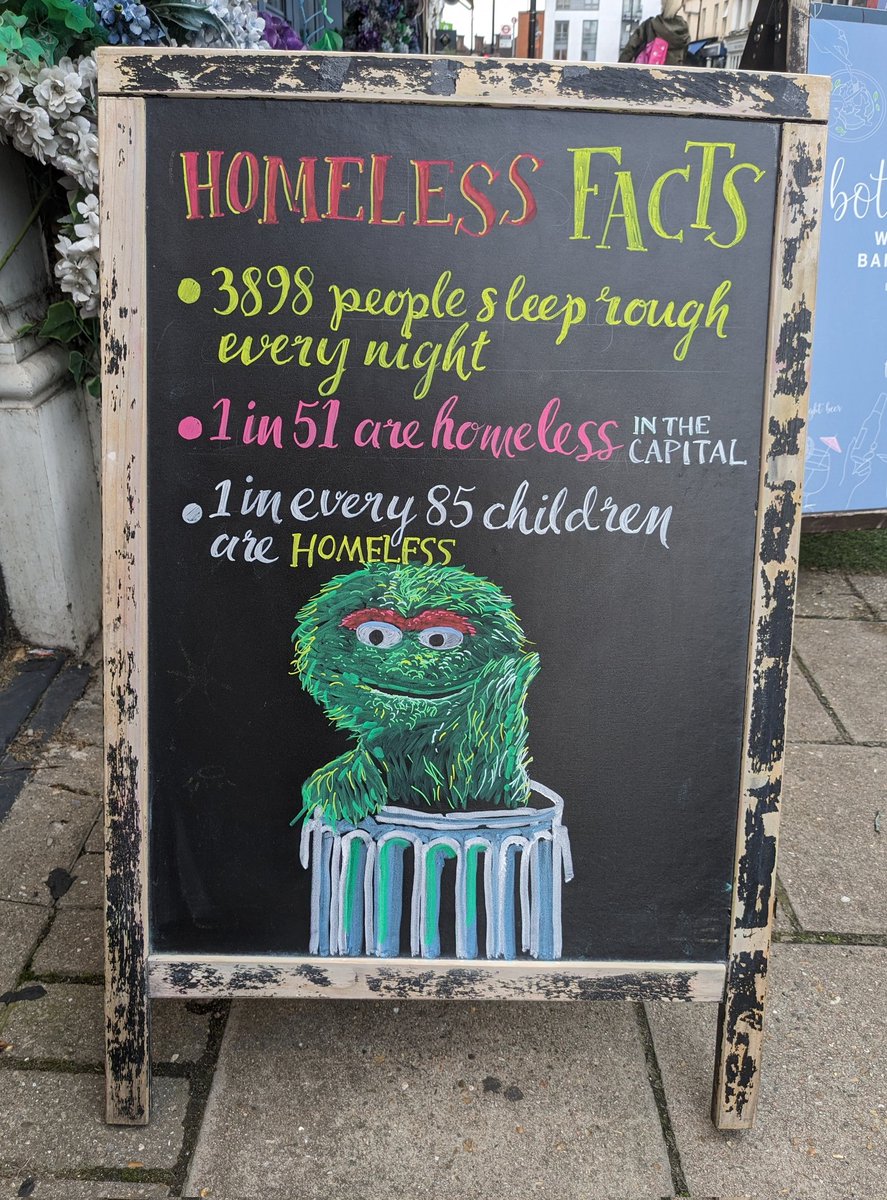 HOMELESS FACTS
• 3898 people sleep rough
every night
• 1 in 51 are homeless IN THE
CAPITAL
• 1 in every 85 children
are HOMELESS
bot
W
BAR